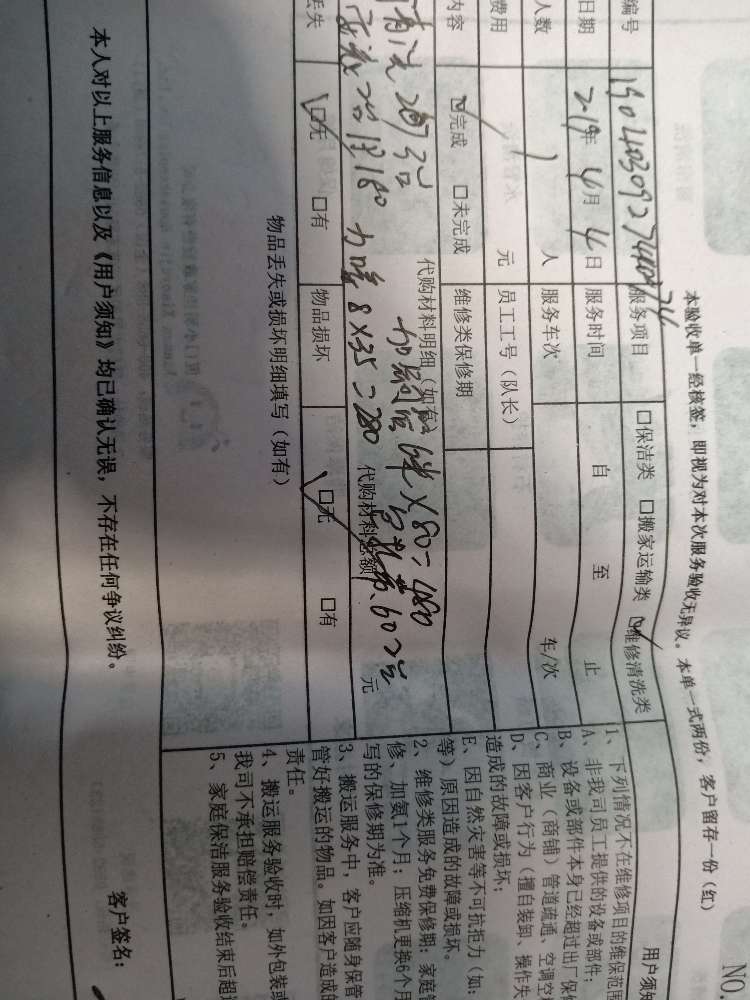 NO.
本验收单一经核签，即视为对本次服务验收无异议。本单一式两份，客户留存一份（红）
编号
服务项目 □保洁类 □搬家运输类 ☑维修清洗类
用户须知
日期 2019年 4月 4日 服务时间 自 至 止
人数 1 人 服务车次 车/次
费用 元 员工工号（队长）
内容 ☑完成 □未完成 维修类保修期
代购材料明细（如有）
加 6米×80=480
8×35=280 代购材料总额 元
丢失 ☑无 □有 物品损坏 ☑无 □有
物品丢失或损坏明细填写（如有）
本人对以上服务信息以及《用户须知》均已确认无误，不存在任何争议纠纷。
客户签名：
1、下列情况不在维修项目的维保范围
A、非我司员工提供的设备或部件；
B、设备或部件本身已经超过出厂保
C、商业（商铺）管道疏通、空调空
D、因客户行为（擅自装卸、操作失
造成的故障或损坏；
E、因自然灾害等不可抗拒力（如：
等）原因造成的故障或损坏。
2、维修类服务免费保修期：家庭管
修、加氨1个月；压缩机更换6个月
写的保修期为准。
3、搬运服务中，客户应随身保管
管好搬运的物品。如因客户造成的
责任。
4、搬运服务验收时，如外包装或
我司不承担赔偿责任。
5、家庭保洁服务验收结束后超过